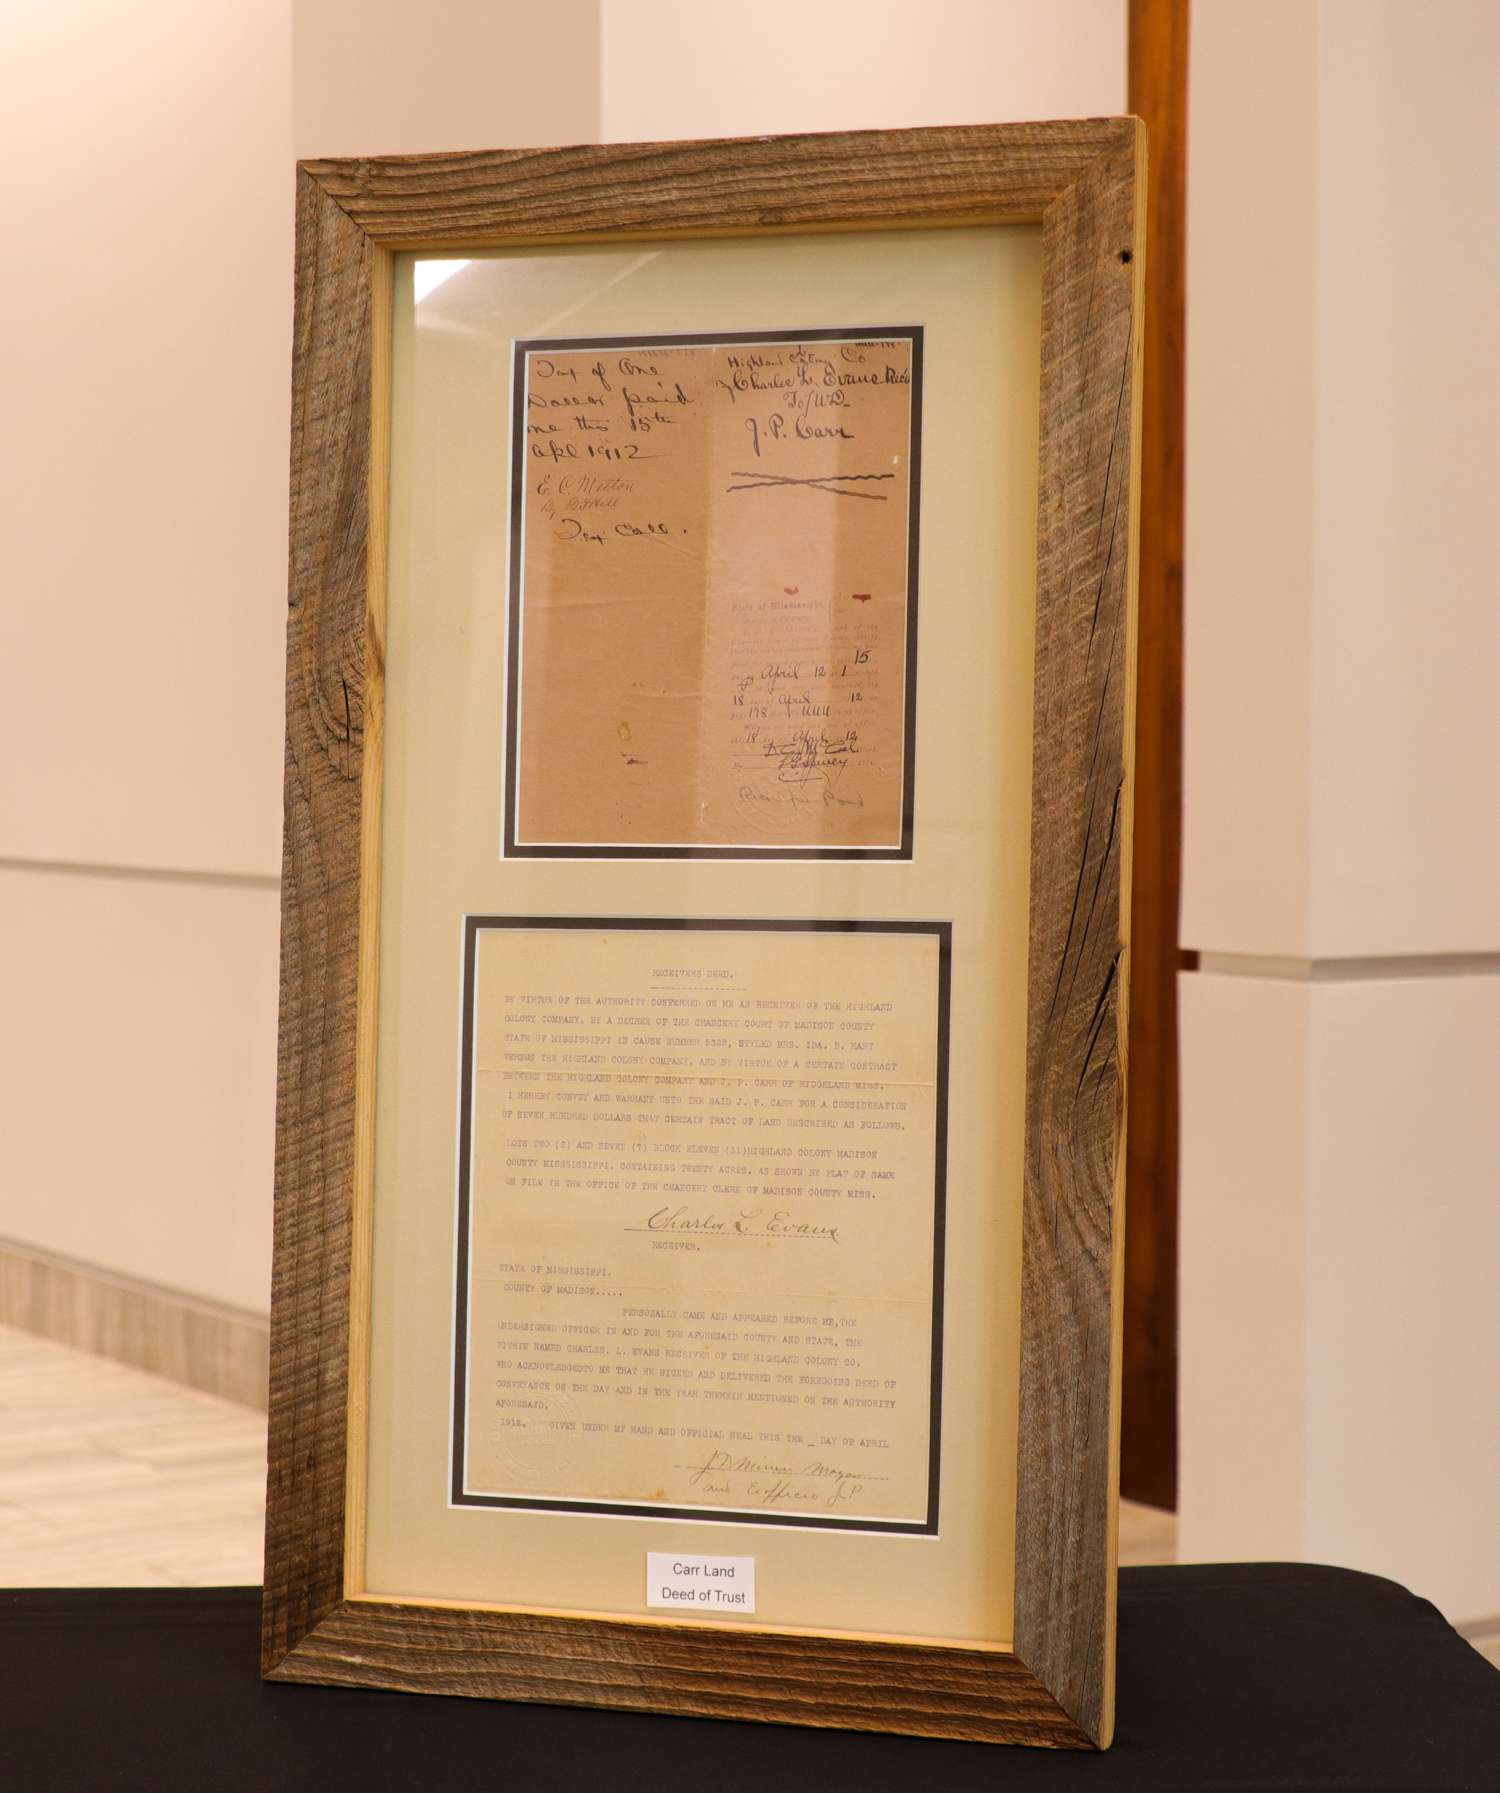 Tax of One
Dollar paid
me this 15th
Apl 1912
E. C.
By
Tax Coll.
Highland Co
Charles L. Evans
To/WD
J. P. Carr
State of Mississippi
15
April 12 1
18 April 12
178 UUU
18 April 12
RECEIVERS DEED.
BY VIRTUE OF THE AUTHORITY CONFERRED ON ME AS RECEIVER OF THE HIGHLAND
COLONY COMPANY. BY A DECREE OF THE CHANCERY COURT OF MADISON COUNTY
STATE OF MISSISSIPPI IN CAUSE NUMBER STYLED MRS. IDA. B. HART
VERSUS THE HIGHLAND COLONY COMPANY. AND BY VIRTUE OF A CERTAIN CONTRACT
BETWEEN THE HIGHLAND COLONY COMPANY AND J. P. CARR OF RIDGELAND MISS.
I HEREBY CONVEY AND WARRANT UNTO THE SAID J. P. CARR FOR A CONSIDERATION
OF SEVEN HUNDRED DOLLARS THAT CERTAIN TRACT OF LAND DESCRIBED AS FOLLOWS.
LOTS TWO (2) AND SEVEN (7) BLOCK ELEVEN (11)HIGHLAND COLONY MADISON
COUNTY MISSSISSIPPI. CONTAINING TWENTY ACRES. AS SHOWN BY PLAT OF SAME
ON FILE IN THE OFFICE OF THE CHANCERY CLERK OF MADISON COUNTY MISS.
Charles L. Evans
RECEIVER.
STATE OF MISSISSIPPI.
COUNTY OF MADISON.....
PERSONALLY CAME AND APPEARED BEFORE ME,THE
UNDERSIGNED OFFICER IN AND FOR THE AFORESAID COUNTY AND STATE, THE
WITHIN NAMED CHARLES. L. EVANS RECEIVER OF THE HIGHLAND COLONY CO,
WHO ACKNOWLEDGEDTO ME THAT HE SIGNED AND DELIVERED THE FOREGOING DEED OF
CONVEYANCE ON THE DAY AND IN THE YEAR THEREIN MENTIONED ON THE AUTHORITY
AFORESAID.
GIVEN UNDER MY HAND AND OFFICIAL SEAL THIS THE _ DAY OF APRIL
1912.
Mayor
and Exofficio J P
Carr Land
Deed of Trust